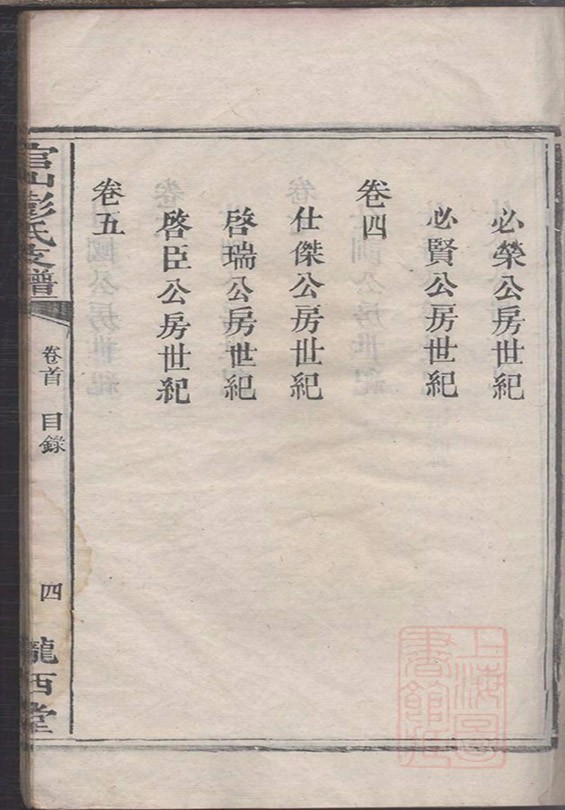 必榮公房世紀
必賢公房世紀
卷四
仕傑公房世紀
啓瑞公房世紀
啓臣公房世紀
卷五
官山彭氏支譜
卷首 目錄
四
隴西堂
上海圖書館藏